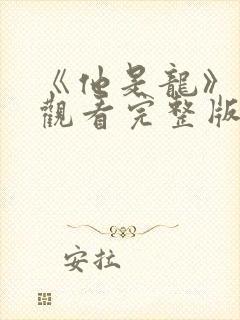 《他是龍》
觀看完整版
安拉